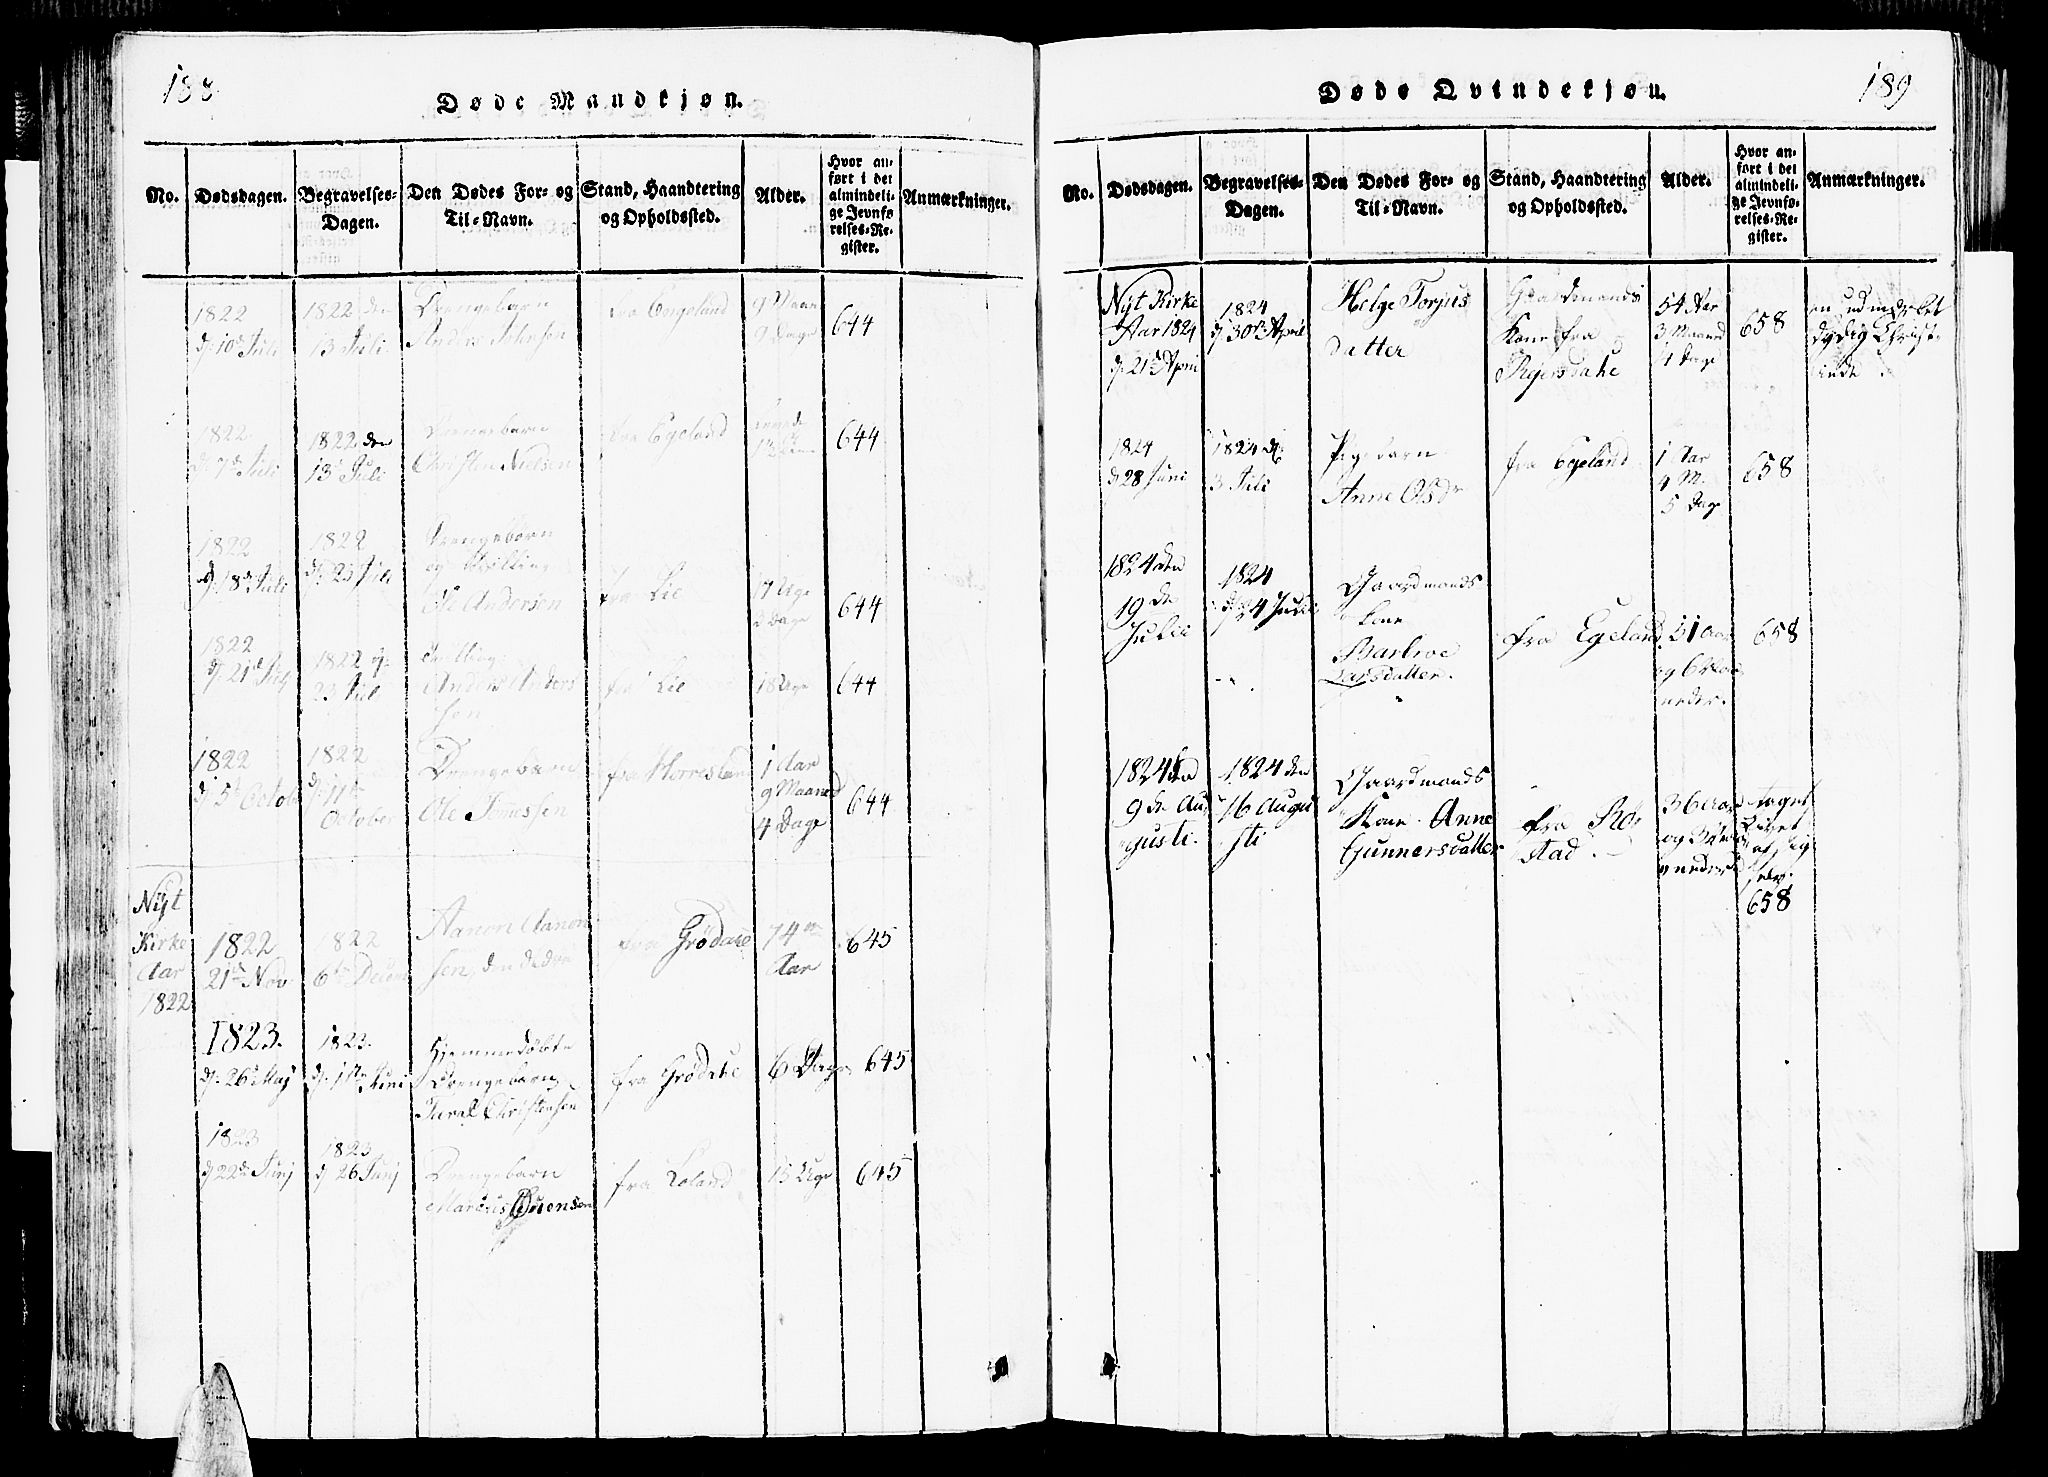 188
Døde Mandkjøn.
No.
Dødsdagen.
Begravelses-
Dagen.
Den Dødes For- og
Til-Navn.
Stand, Haandtering
og Opholdssted.
Alder.
Hvor an-
ført i det
almindeli-
ge Jevnfø
relses-Re-
gister.
Anmærkninger.
1822
d. 10de Juli
1822 den
13 Juli
Drengebarn
Anders Johnsen
fra Engeland
9 Maan
9 Dage
644
1822
d. 7de Juli
1822 den
13 Juli
Drengebarn
Christen Nielsen
fra Egeland
644
1822
d. 18de Juli
1822
d. 23 Juli
Drengebørn
og Tvilling
Ole Andersen
fra Lie
17 Uge
3 Dage
644
1822
d. 21de Julj
1822 d.
23 Juli
Tvilling
Anders Anders
sen
fra Lie
18 Uge
644
1822
d. 5te Octobe
1822
d. 11te
October
Drengebarn
Ole Tomassen
fra
1 Aar
9 Maaned
4 Dage
644
Nyt
Kirke
Aar
1822
1822
21de Nov
1822
6te Decem
Aanon Aanon
sen, den
fra Grødale
74
Aar
645
1823.
d. 26de Maj
1823.
d. 1ste Juni
Hjemmedøbte
Drengebarn
Christensen
fra Grødale
6 Dage
645
1823
d. 22de Junj
1823
d. 26 Junj
Drengebarn
Marcus
fra Loland
15 Uge
645
189
Døde Qvindekjøn.
No.
Dødsdagen.
Begravelses-
Dagen.
Den Dødes For- og
Til-Navn.
Stand, Haandtering
og Opholdssted.
Alder.
Hvor an-
ført i det
almindeli-
ge Jevnfø-
relses-Re-
gister.
Anmærkninger.
Nyt Kirke
Aar 1824
d. 21de Apri
1824
d. 30te April
Helge Torjus
datter
Gaardmands
Kone fra
54 Aar
3 Maaned
4 Dage
658
en udmærket
dydig Christ-
inde.
1824
d. 28 Juni
1824 d.
3 Juli
Pigebarn
Anne Osdr
fra Egeland
1 Aar
4 M.
5 Dage
658
1824 den
19 de
Julii
1824
d. 24 Juli
Gaardmands
kone
Barbroe
Larsdatter.
fra Egeland
51 Aar
og 6 Maa
neder.
658
1824 den
9 de Au
gusti.
1824 den
16 Augu
sti
Gaardmands
Kone Anne
Gunnersdatter
fra
stad.
36 Aar
og 3 Ma
neder
taget
Livet
af sig
selv.
658